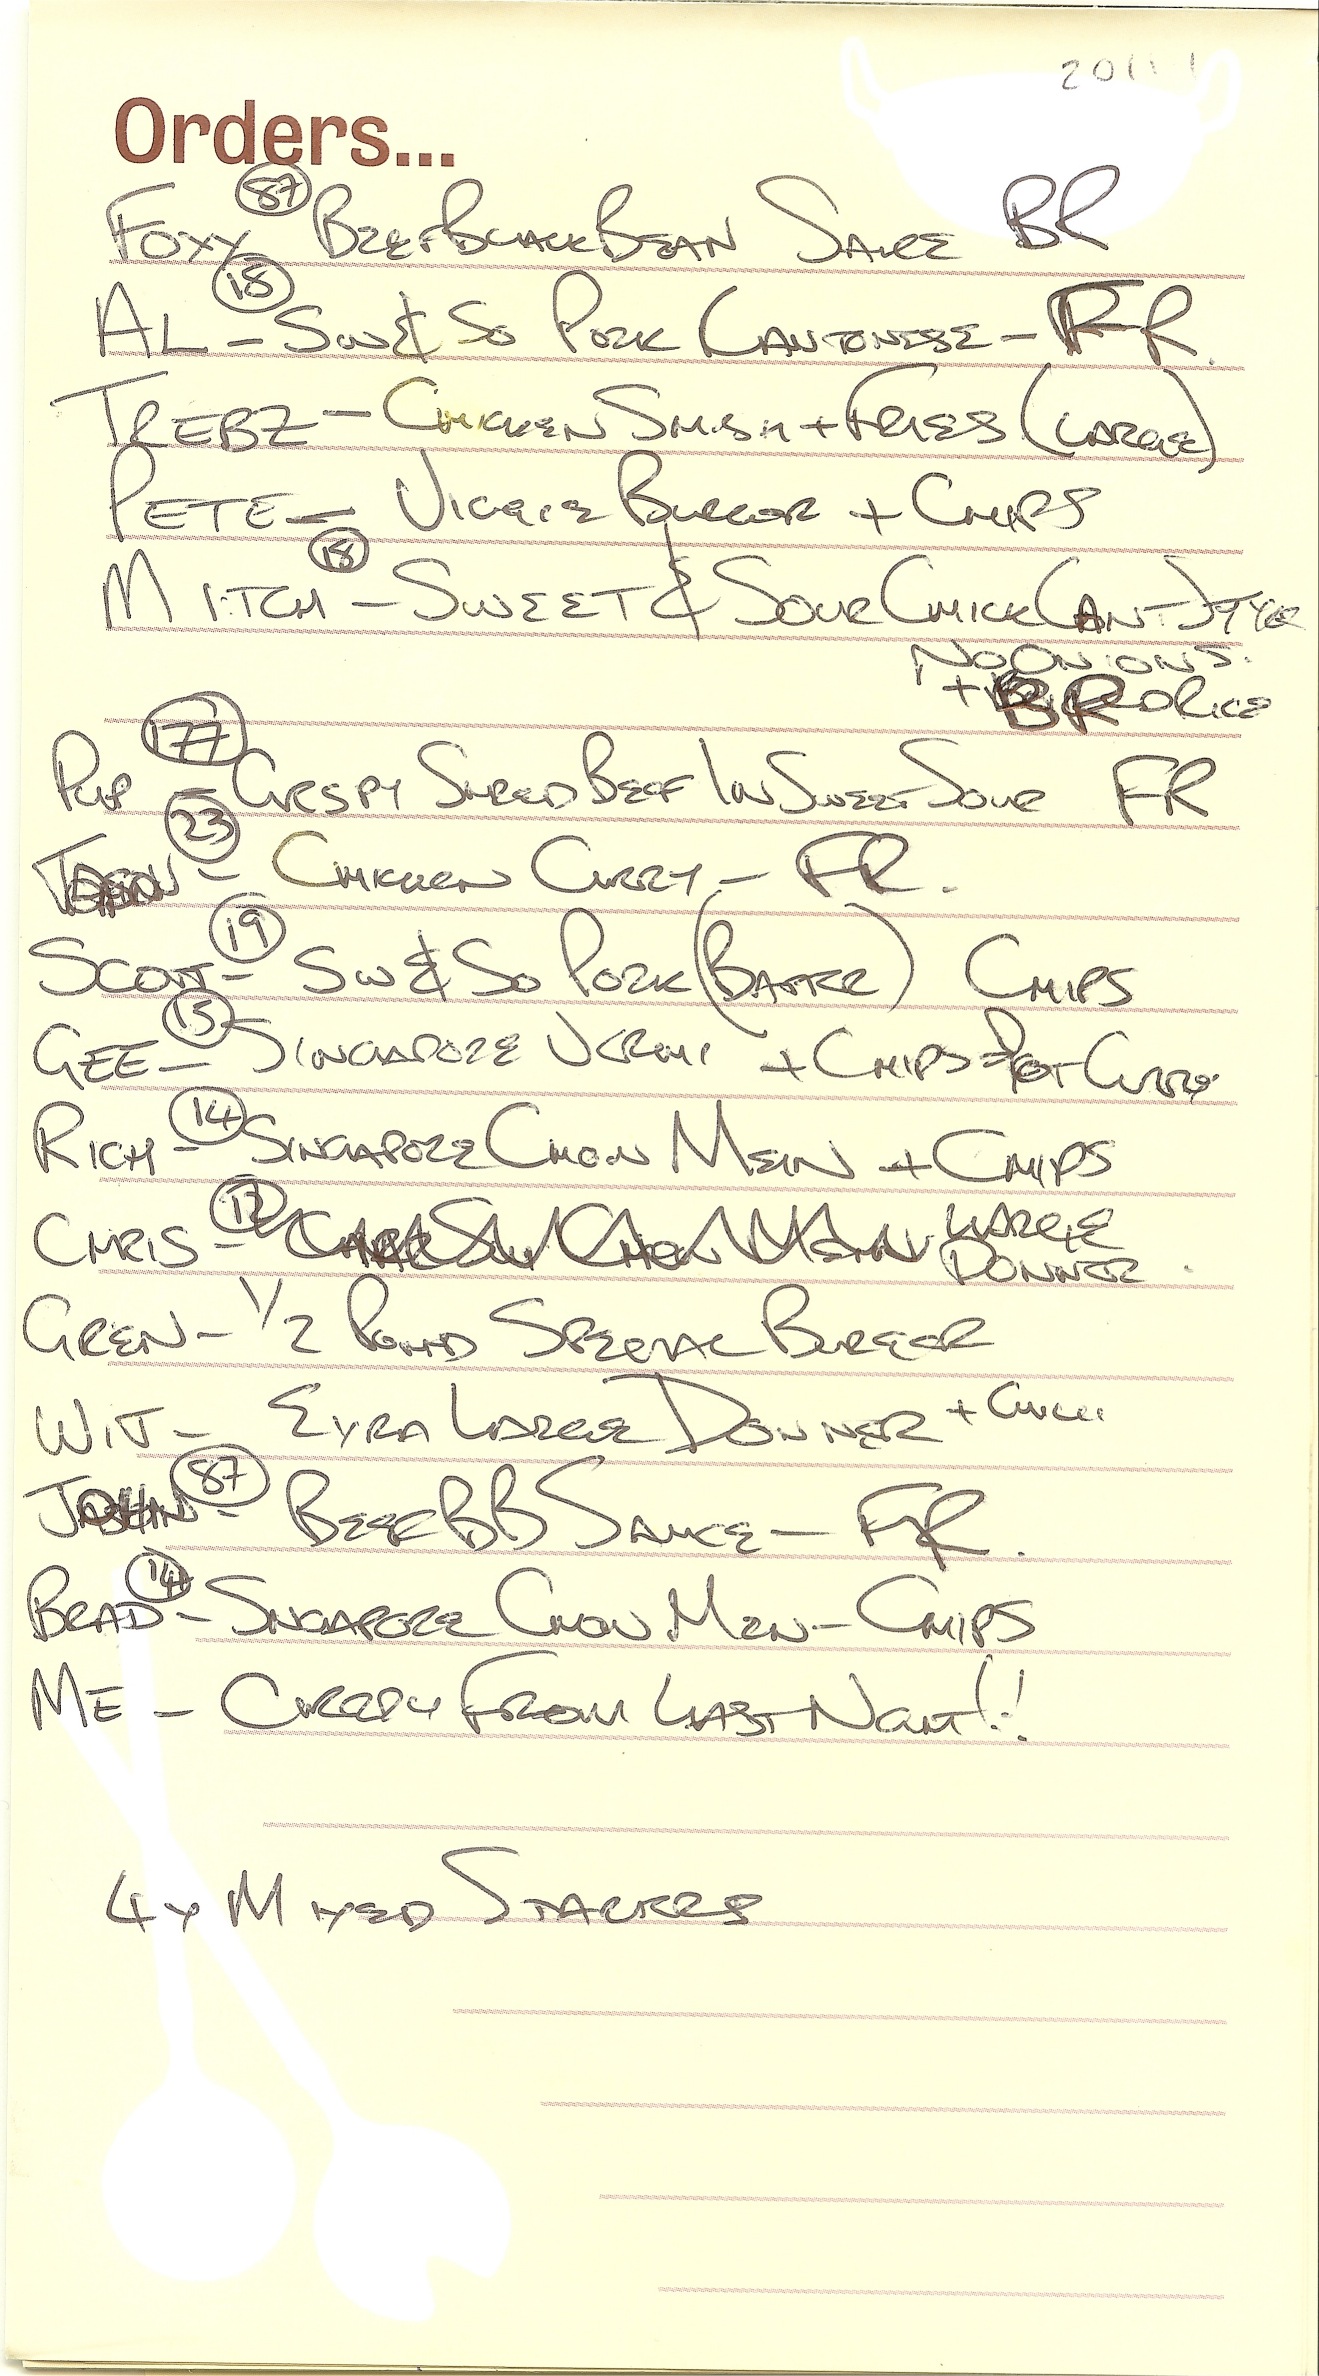 Orders...
FOXY (87) BEEF BLACK BEAN SAUCE BR
AL - (18) SW & SO PORK CANTONESE - FR.
TREBZ - CHICKEN SMISH + FRIES (LARGE)
PETE - VICGIE BURGER + CHIPS
MITCH - (18) SWEET & SOUR CHICK CANT STYLE
NO ONIONS.
+ BR RICE
(177) - CRISPY SHRED BEEF IN SWEET SOUR FR
(23) - CHICKEN CURRY - FR.
SCOTT - (19) SW & SO PORK (BATTER) CHIPS
GEE - SINGAPORE VERMI + CHIPS + POT CURRY
RICH - (14) SINGAPORE CHOW MEIN + CHIPS
CHRIS - (12) CHOW MEIN LARGE
DONNER.
GREN - 1/2 POUND SPECIAL BURGER
EXRA LARGE DONNER + CHILLI
(87) - BEEF BB SAUCE - FR.
BRAD - (14) SINGAPORE CHOW MEIN - CHIPS
ME - CURRY FROM LAST NIGHT!!
4 x MIXED STARTERS